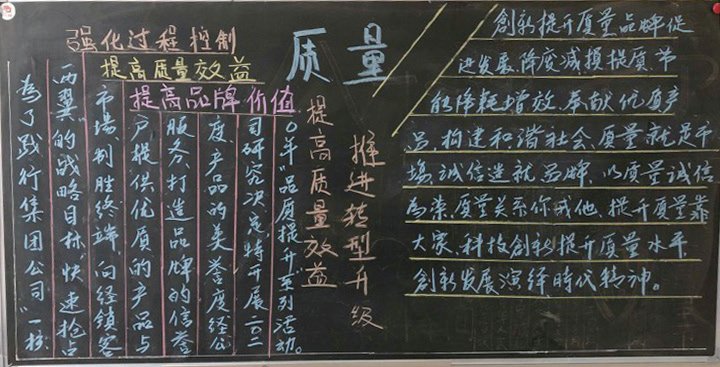 强化过程控制
提高质量效益
提高品牌价值
质量
为了践行集团公司"一核
两翼"的战略目标,快速抢占
市場,制胜终端,向经销客
户提供优质的产品与
服务,打造品牌的信誉
度,产品的美誉度经公
司研究决定特开展二〇二
〇年"品质提升"系列活动。
提高质量效益
推进转型升级
創新提升质量品牌促
进发展,降度减损提质,节
能降耗增效,奉献优质产
品,构建和谐社会,质量就是市
場,诚信造就品牌,以质量诚信
為荣,质量关系你我他,提升质量靠
大家,科技創新提升质量水平
創新发展演绎時代精神。